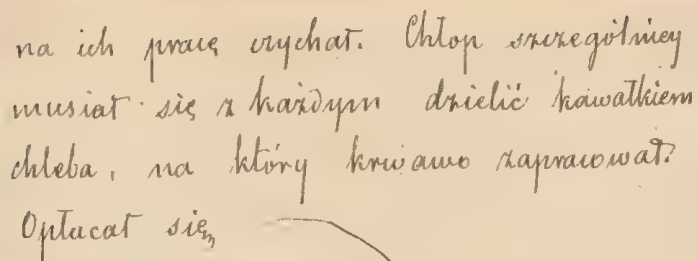 na ich pracę czychał. Chłop szczególniey
musiał się z każdym dzielić kawałkiem
chleba, na który krwawo zapracował.
Opłacał się,